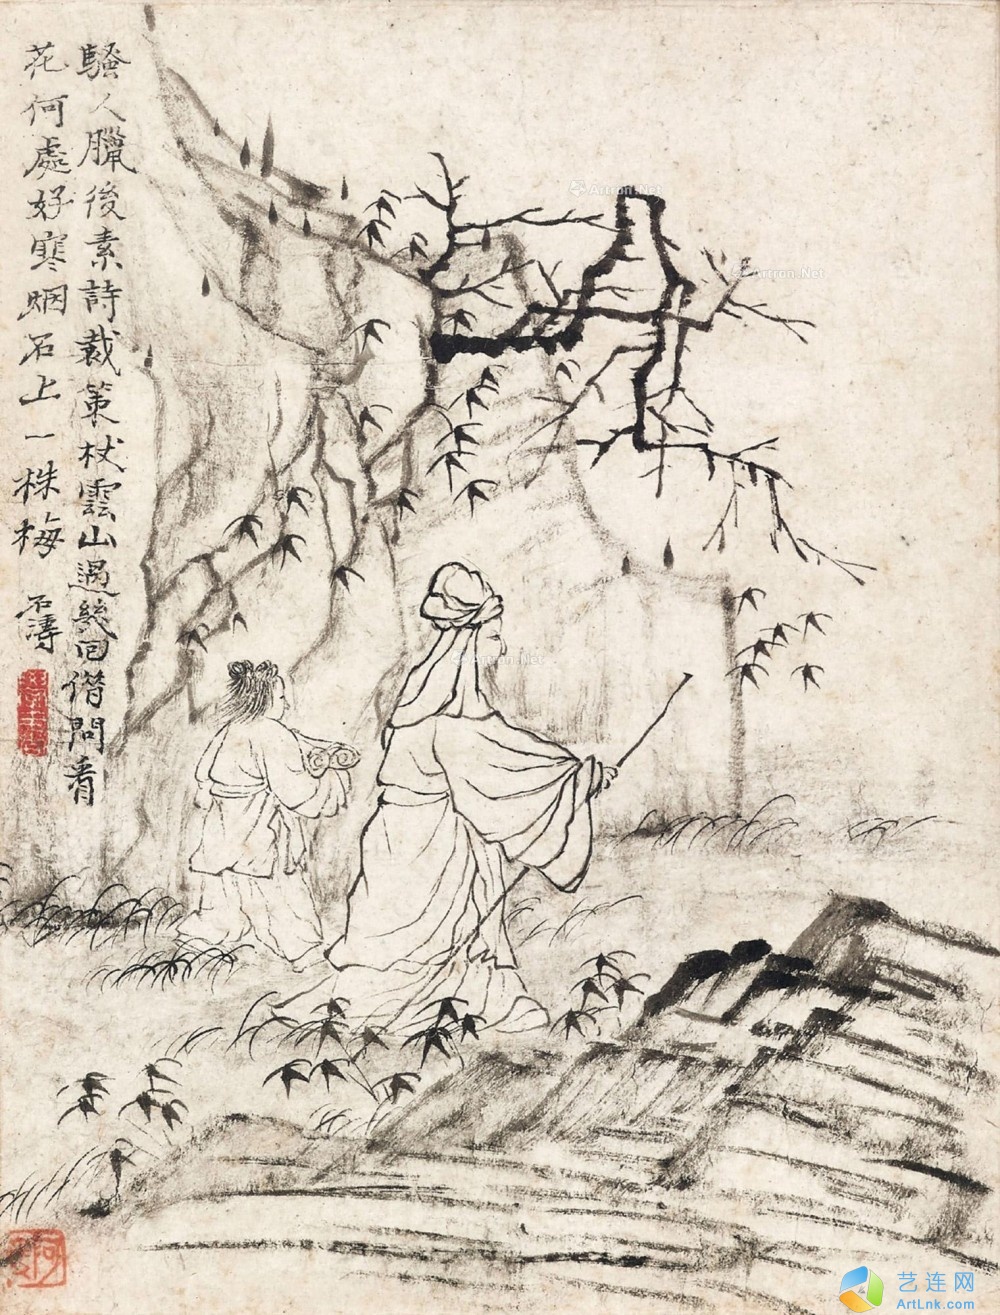 騷人臘後索詩裁策杖雲山過幾回借問看
花何處好寒烟石上一株梅
石濤
Artron.Net
Artron.Net
Artron.Net
艺连网
ArtLnk.com